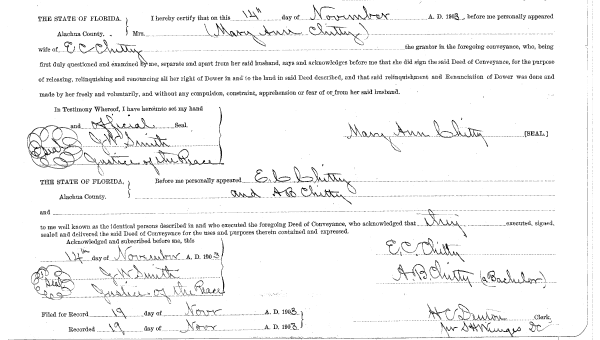 THE STATE OF FLORIDA, I hereby certify that on this 14th day of November A. D. 1903, before me personally appeared
Alachua County. Mrs. (Mary Ann Chitty)
wife of E C Chitty the grantor in the foregoing conveyance, who, being
first duly questioned and examined by me, separate and apart from her said husband, says and acknowledges before me that she did sign the said Deed of Conveyance, for the purpose
of releasing, relinquishing and renouncing all her right of Dower in and to the land in said Deed described, and that said relinquishment and Renunciation of Dower was done and
made by her freely and voluntarily, and without any compulsion, constraint, apprehension or fear of or from her said husband.
In Testimony Whereof, I have hereunto set my hand
and official Seal.
Seal J W Smith Mary Ann Chitty [SEAL]
Justice of the Peace
THE STATE OF FLORIDA, Before me personally appeared E. C. Chitty
Alachua County. and A B Chitty
and
to me well known as the identical persons described in and who executed the foregoing Deed of Conveyance, who acknowledged that they executed, signed,
sealed and delivered the said Deed of Conveyance for the uses and purposes therein contained and expressed.
Acknowledged and subscribed before me, this
14th day of November A. D. 1903 E. C. Chitty
Seal J. W Smith A. B. Chitty (a Bachelor)
Justice of the Peace
Filed for Record 19 day of Novr A. D. 1903 H C Denton Clerk,
Recorded 19 day of Novr A. D. 1903. per DC